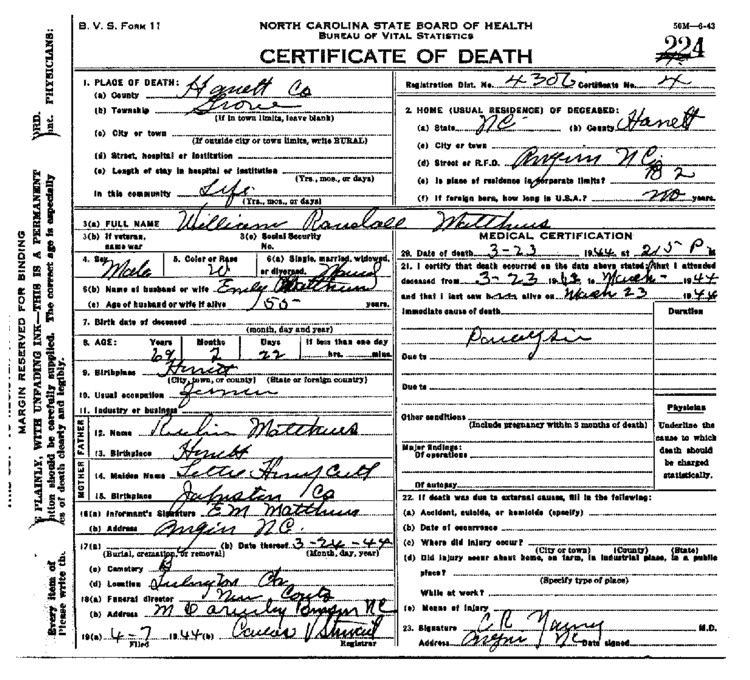 B. V. S. FORM 11
NORTH CAROLINA STATE BOARD OF HEALTH
BUREAU OF VITAL STATISTICS
50M—6-43
CERTIFICATE OF DEATH
224
MARGIN RESERVED FOR BINDING
PLAINLY, WITH UNFADING INK—THIS IS A PERMANENT
should be carefully supplied. The correct age is especially
of death clearly and legibly.
PHYSICIANS:
Every item of
Please write the
1. PLACE OF DEATH:
(a) County Harnett Co
(b) Township Grove
(If in town limits, leave blank)
(c) City or town
(If outside city or town limits, write RURAL)
(d) Street, hospital or institution
(e) Length of stay in hospital or institution
(Yrs., mos., or days)
In this community Life
(Yrs., mos., or days)
Registration Dist. No. 4306 Certificate No. 4
2. HOME (USUAL RESIDENCE) OF DECEASED:
(a) State NC (b) County Harnett
(c) City or town
(d) Street or R.F.D. Angier NC
(e) Is place of residence in corporate limits? 2
(f) If foreign born, how long in U.S.A.? no years.
3(a) FULL NAME William Matthews
3(b) If veteran,
name war
3(c) Social Security
No.
4. Sex Male
5. Color or Race W
6(a) Single, married, widowed,
or divorced.
6(b) Name of husband or wife Emily Matthews
(c) Age of husband or wife if alive 55 years.
7. Birth date of deceased
(month, day and year)
8. AGE: Years Months Days If less than one day
69 2 22 hrs. mins.
9. Birthplace Harnett
(City, town, or county) (State or foreign country)
10. Usual occupation Farmer
11. Industry or business
FATHER
12. Name Matthews
13. Birthplace Harnett
MOTHER
14. Maiden Name
15. Birthplace Johnston Co
16(a) Informant's Signature E M Matthews
(b) Address Angier N.C.
17(a) (b) Date thereof 3-24-44
(Burial, cremation, or removal) (Month, day, year)
(c) Cemetery
(d) Location
18(a) Funeral director
(b) Address NC
19(a) 4-7 1944 (b)
Filed Registrar
MEDICAL CERTIFICATION
20. Date of death 3-23 1944 at 215 P M
21. I certify that death occurred on the date above stated; that I attended
deceased from 3-23 19 to March 1944
and that I last saw him alive on March 23 1944
Immediate cause of death
Duration
Due to
Due to
Other conditions
(Include pregnancy within 3 months of death)
Major findings:
Of operations
Of autopsy
Physician
Underline the
cause to which
death should
be charged
statistically.
22. If death was due to external causes, fill in the following:
(a) Accident, suicide, or homicide (specify)
(b) Date of occurrence
(c) Where did injury occur?
(City or town) (County) (State)
(d) Did injury occur about home, on farm, in industrial place, in a public
place?
(Specify type of place)
While at work?
(e) Means of injury
23. Signature C R Young M.D.
Address Angier NC Date signed